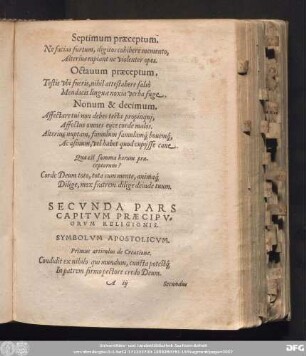 Septimum præceptum.
Ne facias furtum, digitos cohibere memento,
Alterius rapiant ne violenter opes.
Octauum præceptum.
Testis vbi fueris, nihil attestabere falsi
Mendacis linguæ noxia verba fuge.
Nonum & decimum.
Affectare tui non debes tecta propinqui,
Affectus omnes eijce corde malos.
Alterius nuptam, famulum famulamq; bouemq;
Ac asinum, vel habet quod cupijsse caue.
Quæ est summa horum præceptorum?
Corde Deum toto, tota cum mente, animoq;
Dilige, mox fratrem dilige deinde tuum.
SECVNDA PARS
CAPITVM PRÆCIPV⸗
ORVM RELIGIONIS.
SYMBOLVM APOSTOLICVM.
Primus articulus de Creatione.
Condidit ex nihilo qui mundum, cuncta potestq;
In patrem firmo pectore credo Deum.
A iij
Secundus